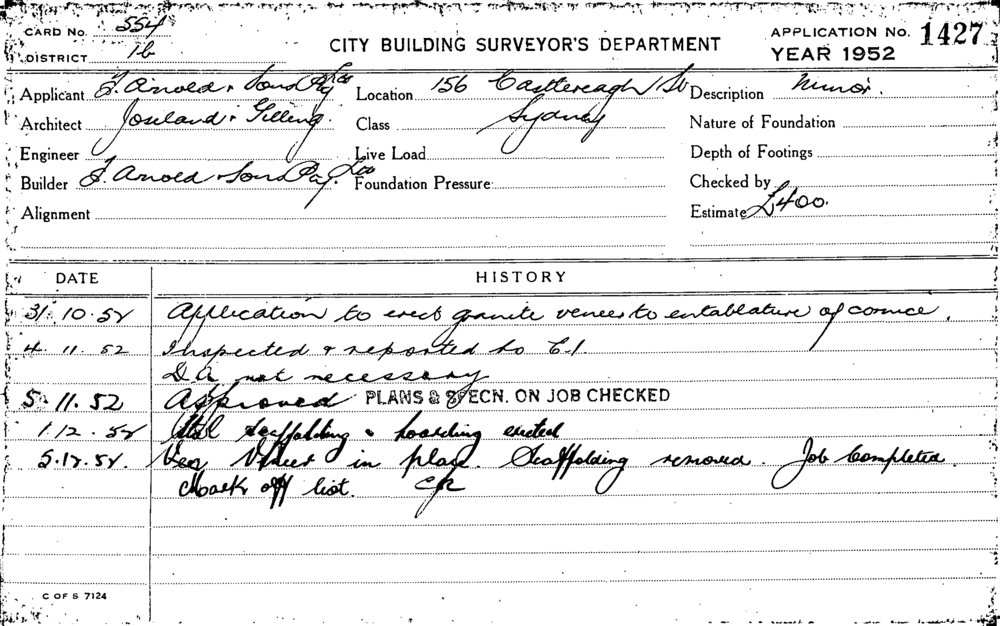 CARD No. 554
DISTRICT 1b
CITY BUILDING SURVEYOR'S DEPARTMENT
APPLICATION No. 1427
YEAR 1952
Applicant F. Arnold & Sons Pty Ltd Location 156 Castlereagh St Description Minor.
Architect Joseland & Gilling. Class Sydney Nature of Foundation
Engineer Live Load Depth of Footings
Builder F. Arnold & Sons Pty. Ltd Foundation Pressure Checked by
Alignment Estimate £400.
DATE HISTORY
31.10.52 Application to erect granite veneer to entablature of cornice.
4.11.52 Inspected & reported to C.I.
D A not necessary
5.11.52 Approved PLANS & SPECN. ON JOB CHECKED
1.12.52 scaffolding & hoarding erected
5.12.52. Veneer in place. Scaffolding removed. Job Completed.
Mark off list.
C OF S 7124